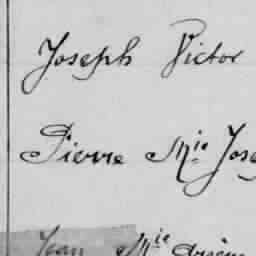 Joseph Victor
Pierre Mie Jose
Jean Mie Arsèn